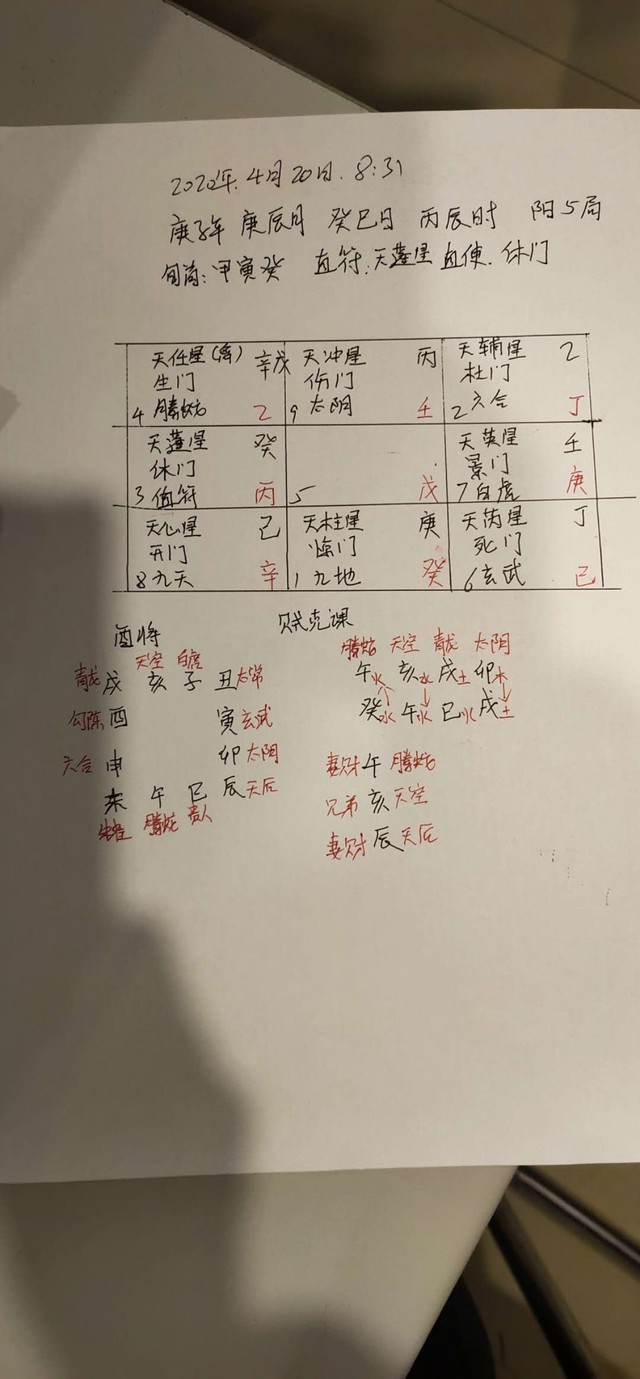 2020年.4月20日.8:31
庚子年 庚辰月 癸巳日 丙辰时 阳5局
旬首:甲寅癸 直符:天蓬星 直使.休门
天任星(禽) 辛戊 天冲星 丙 天辅星 乙
生门 伤门 杜门
4 腾蛇 乙 9 太阴 壬 2 六合 丁
天蓬星 癸 天英星 壬
休门 景门
3 值符 丙 5 戊 7 白虎 庚
天心星 己 天柱星 庚 天芮星 丁
开门 惊门 死门
8 九天 辛 1 九地 癸 6 玄武 己
酉将 贼克课
天空 白虎 腾蛇 天空 青龙 太阴
青龙 戌 亥 子 丑 太常 午火 亥水 戌土 卯木
勾陈 酉 寅 玄武 癸水 午火 巳火 戌土
六合 申 卯 太阴 妻财 午 腾蛇
未 午 巳 辰 天后 兄弟 亥 天空
朱雀 腾蛇 贵人 妻财 辰 天后